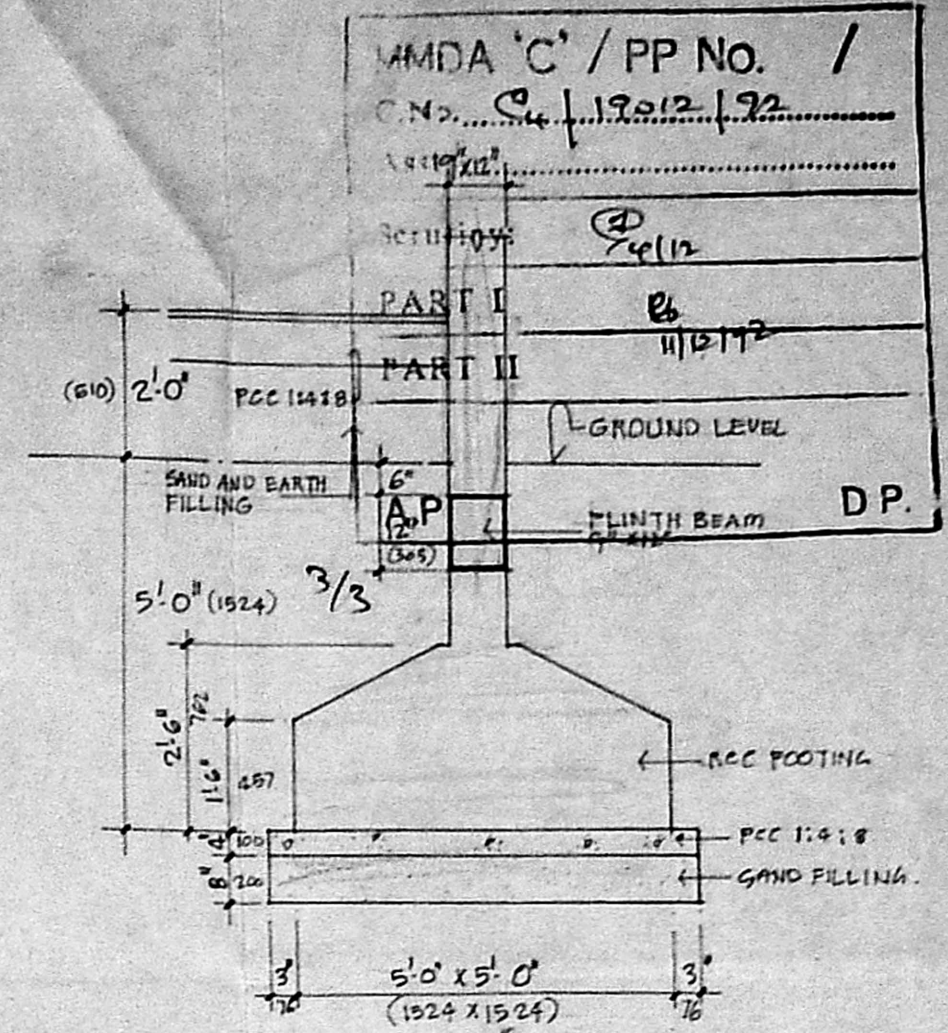 MMDA 'C' / PP No. /
C.No. C4 / 19012 / 92
9"x12"
Scrutiny:
4/12
PART I
11/12/92
PART II
(610) 2'-0"
PCC 1:4:8
GROUND LEVEL
SAND AND EARTH
FILLING
6"
A.P
D P.
12"
(305)
PLINTH BEAM
9"x12"
3/3
5'-0" (1524)
2'-6"
762
1'-6"
457
RCC FOOTING
4"
100
PCC 1:4:8
8"
200
SAND FILLING.
3"
5'-0" x 5'-0"
3"
76
(1524 x 1524)
76